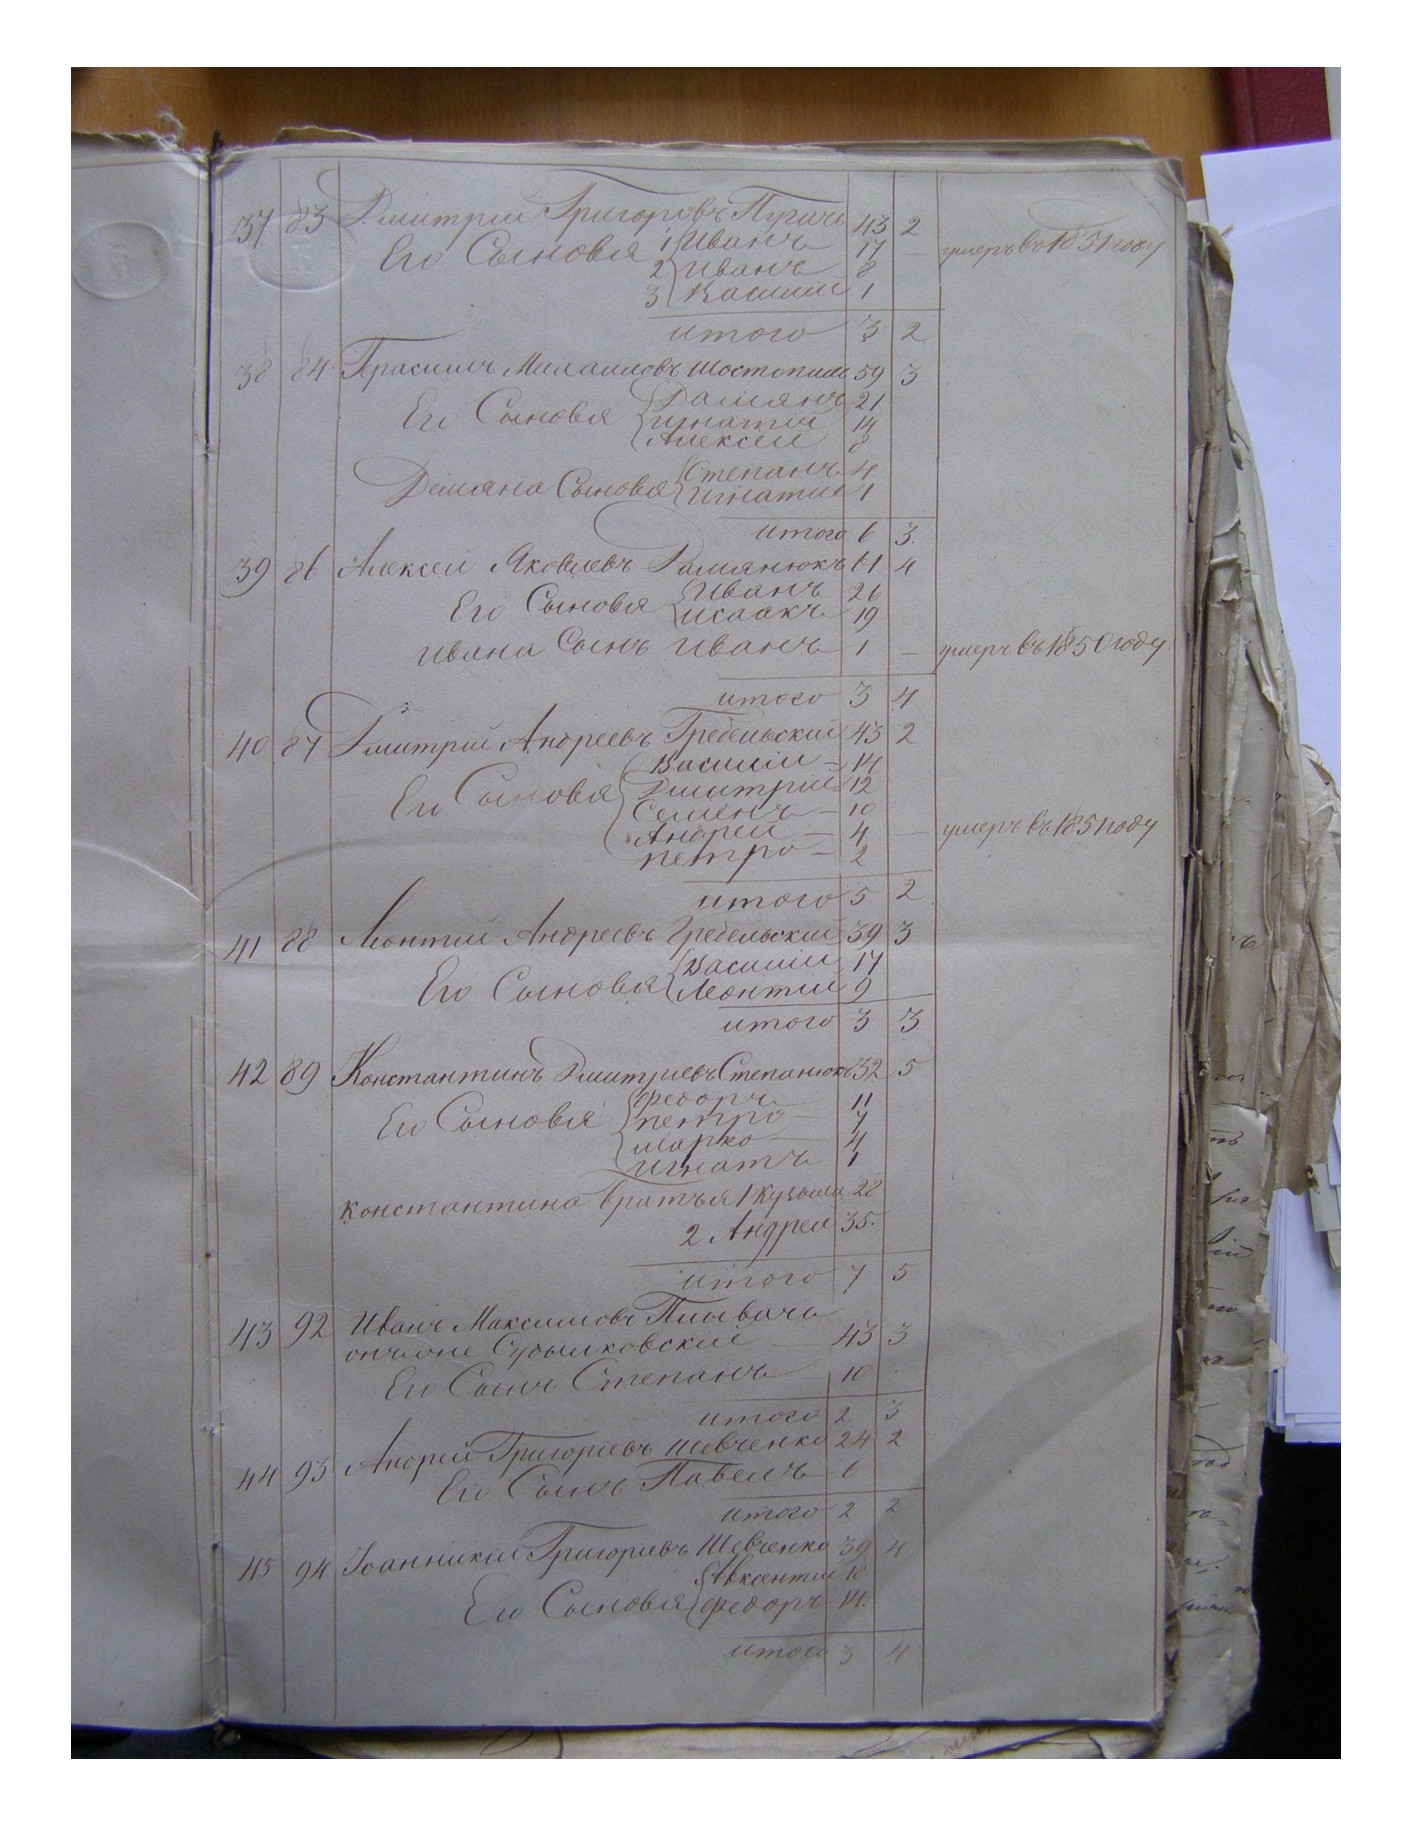 37 83 Дмитрій Григоровъ Пугачъ 43 2
Его Сыновья 1 Иванъ 17 — умеръ въ 1851 году
2 Иванъ 8
3 Василій 1
итого 3 2
38 84 Герасимъ Михаиловъ 59 3
Его Сыновья Дамянъ 21
Игнатій 14
Алексей 8
Демяна Сыновья Степанъ 4
Игнатій 1
итого 6 3
39 86 Алексей Яковлевъ Дамянюкъ 61 4
Его Сыновья Иванъ 26
Исаакъ 19
Ивана Сынъ Иванъ 1 — умеръ въ 1850 году
итого 3 4
40 87 Дмитрій Андреевъ Гребельскій 43 2
Василій — 14
Его Сыновья Дмитрій 12
Семенъ — 10
Андрей — 4 — умеръ въ 1851 году
Петро — 2
итого 5 2
41 88 Леонтій Андреевъ Гребельскій 39 3
Его Сыновья Василій 17
Леонтій 9
итого 3 3
42 89 Константинъ Дмитріевъ Степанюкъ 32 5
Федоръ 11
Его Сыновья Петро — 7
Марко — 4
Игнатъ 1
Константина братья 1 Кузьма 28
2 Андрей 35.
итого 7 5
43 92 Иванъ Максимовъ
онъ же Судылковскій — 43 3
Его Сынъ Степанъ 10
итого 2 3
44 93 Андрей Григоріевъ Шевченко 24 2
Его Сынъ Павелъ 6
итого 2 2
45 94 Іоанникій Григоріевъ Шевченко 39 4
Авксентій 18
Его Сыновья Федоръ 14.
итого 3 4